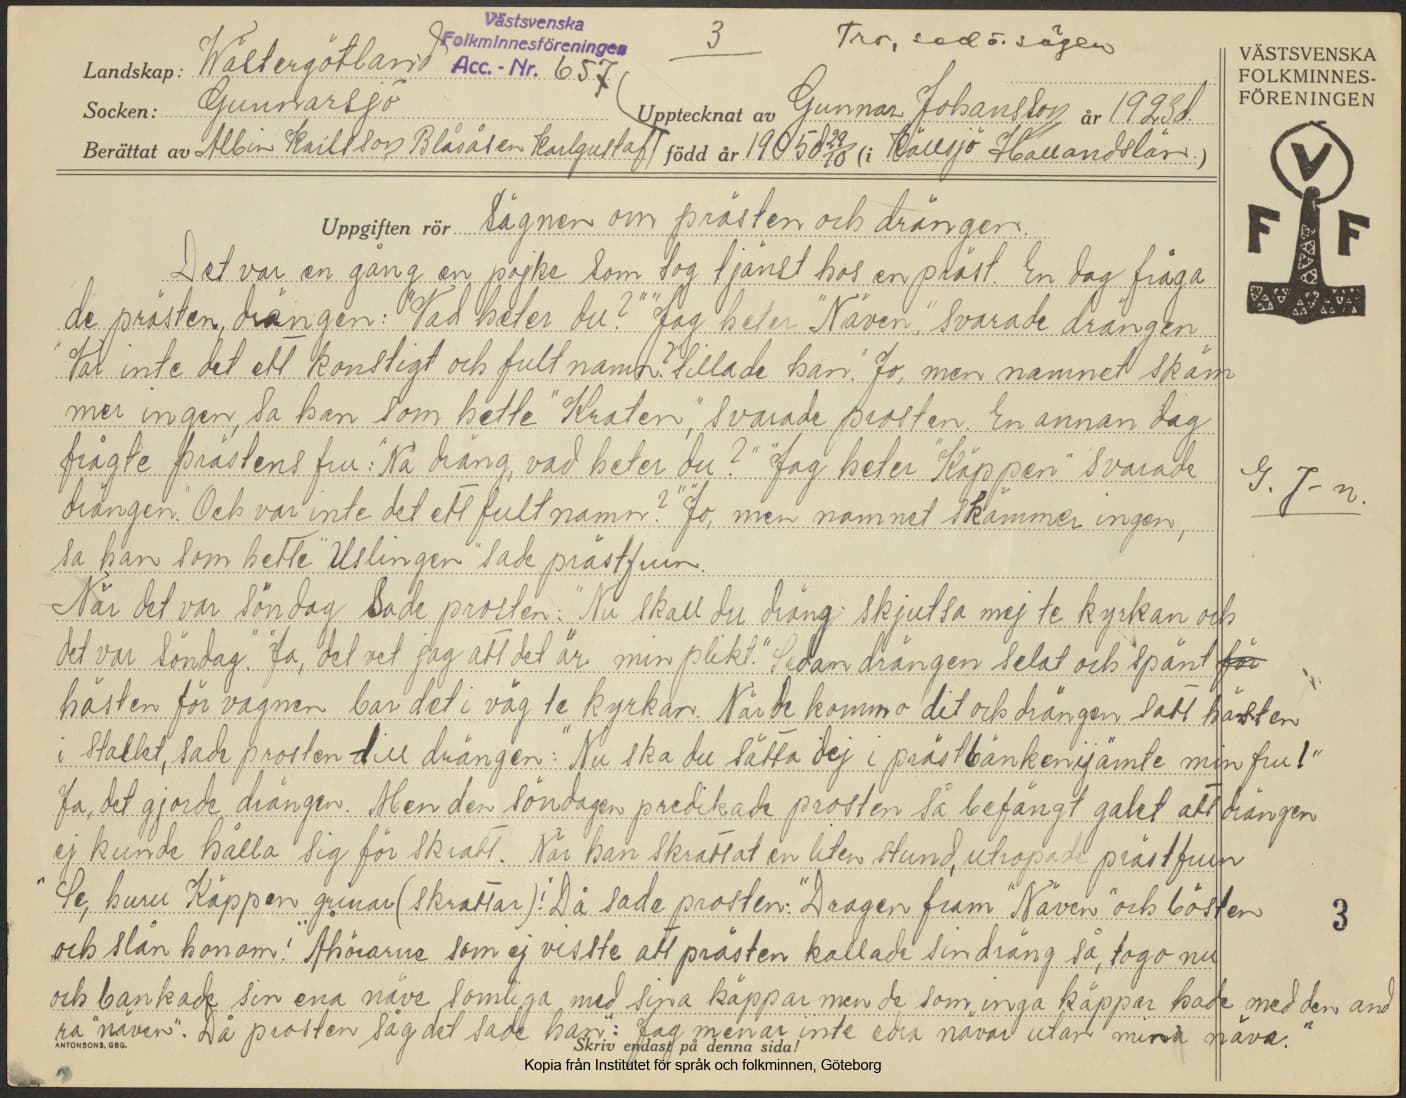 Västsvenska
Folkminnesföreningen
Acc. - Nr. 657
3
Tro, sed o. sägen
Landskap: Wästergötland
Socken: Gunnarsjö
Upptecknat av Gunnar Johansson år 1923
Berättat av Albin Karlsson Blåsåsen Karlgustaf född år 1905 (i Källsjö Hallandslän.)
VÄSTSVENSKA
FOLKMINNES-
FÖRENINGEN
V
F F
Uppgiften rör Sägnen om prästen och drängen.
Det var en gång en pojke som tog tjänst hos en präst. En dag fråga
de prästen, drängen: "Vad heter du?" "Jag heter "Näven", svarade drängen
"Var inte det ett konstigt och fult namn? tillade han." Jo, men namnet skäm
mer ingen, sa han som hette "Kraten," svarade prosten. En annan dag
frågte prästens fru: "Na dräng, vad heter du?" "Jag heter "Käppen" svarade
drängen." Och var inte det ett fult namn?" "Jo, men namnet skämmer ingen,
sa han som hette "Uslingen" sade prästfrun.
När det var söndag sade prosten: "Nu skall du dräng skjutsa mej te kyrkan och
det var söndag." "Ja, det vet jag att det är min plikt." Sedan drängen selat och spänt för
hästen för vagnen bar det i väg te kyrkan. När de kommo dit och drängen satt hästen
i stallet, sade prosten till drängen: "Nu ska du sätta dej i prästbänken jämte min fru!"
Ja, det gjorde drängen. Men den söndagen predikade prosten så befängt galet att drängen
ej kunde hålla sig för skratt. När han skrattat en liten stund, utropade prästfrun
"Se, huru Käppen grinar (skrattar)!" Då sade prosten: "Dragen fram "Näven" och bösten
och slån honom!" Åhörarne som ej visste att prästen kallade sin dräng så, togo nu
och bankade sin ena näve somliga med sina käppar men de som inga käppar hade med den and
ra "näven". Då prosten såg det sade han: "Jag menar inte edra nävar utan mina näva."
G. J-n.
3
ANTONSONS, GBG.
Skriv endast på denna sida!
Kopia från Institutet för språk och folkminnen, Göteborg